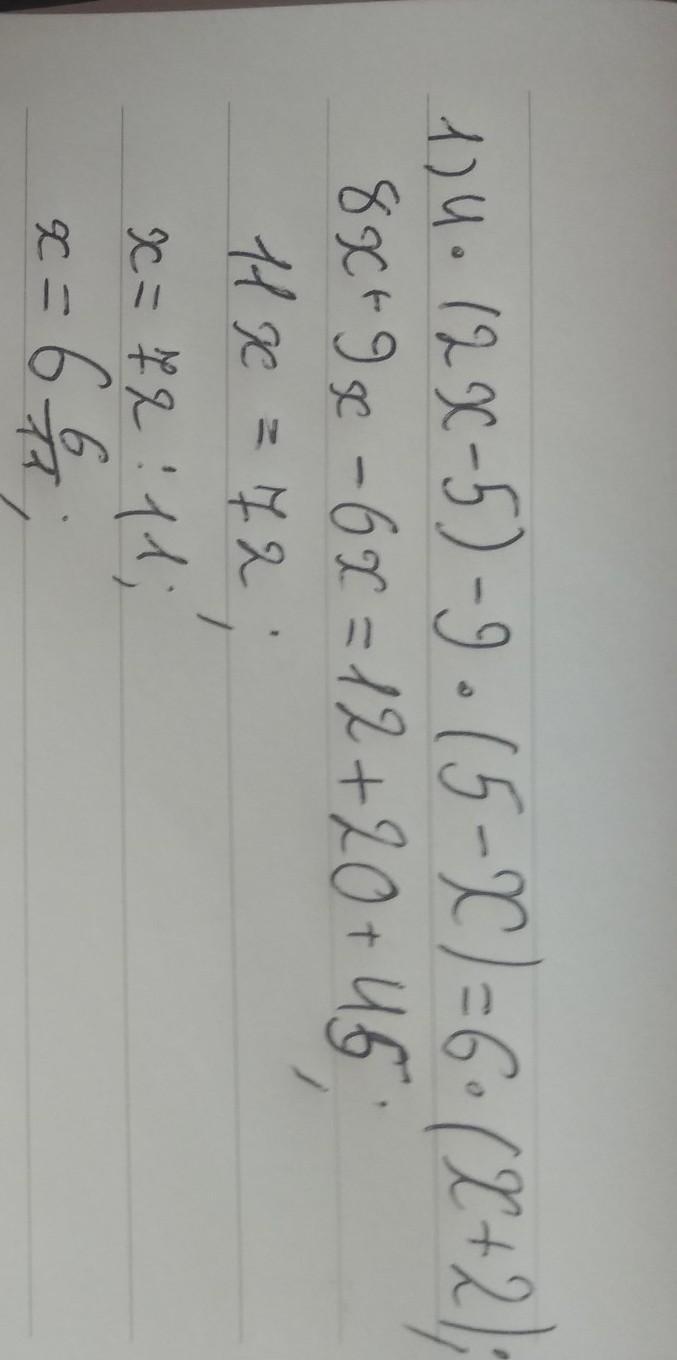 1) 4 · (2x - 5) - 9 · (5 - x) = 6 · (x + 2);
8x + 9x - 6x = 12 + 20 + 45;
11x = 72;
x = 72 : 11;
x = 6 6/11;